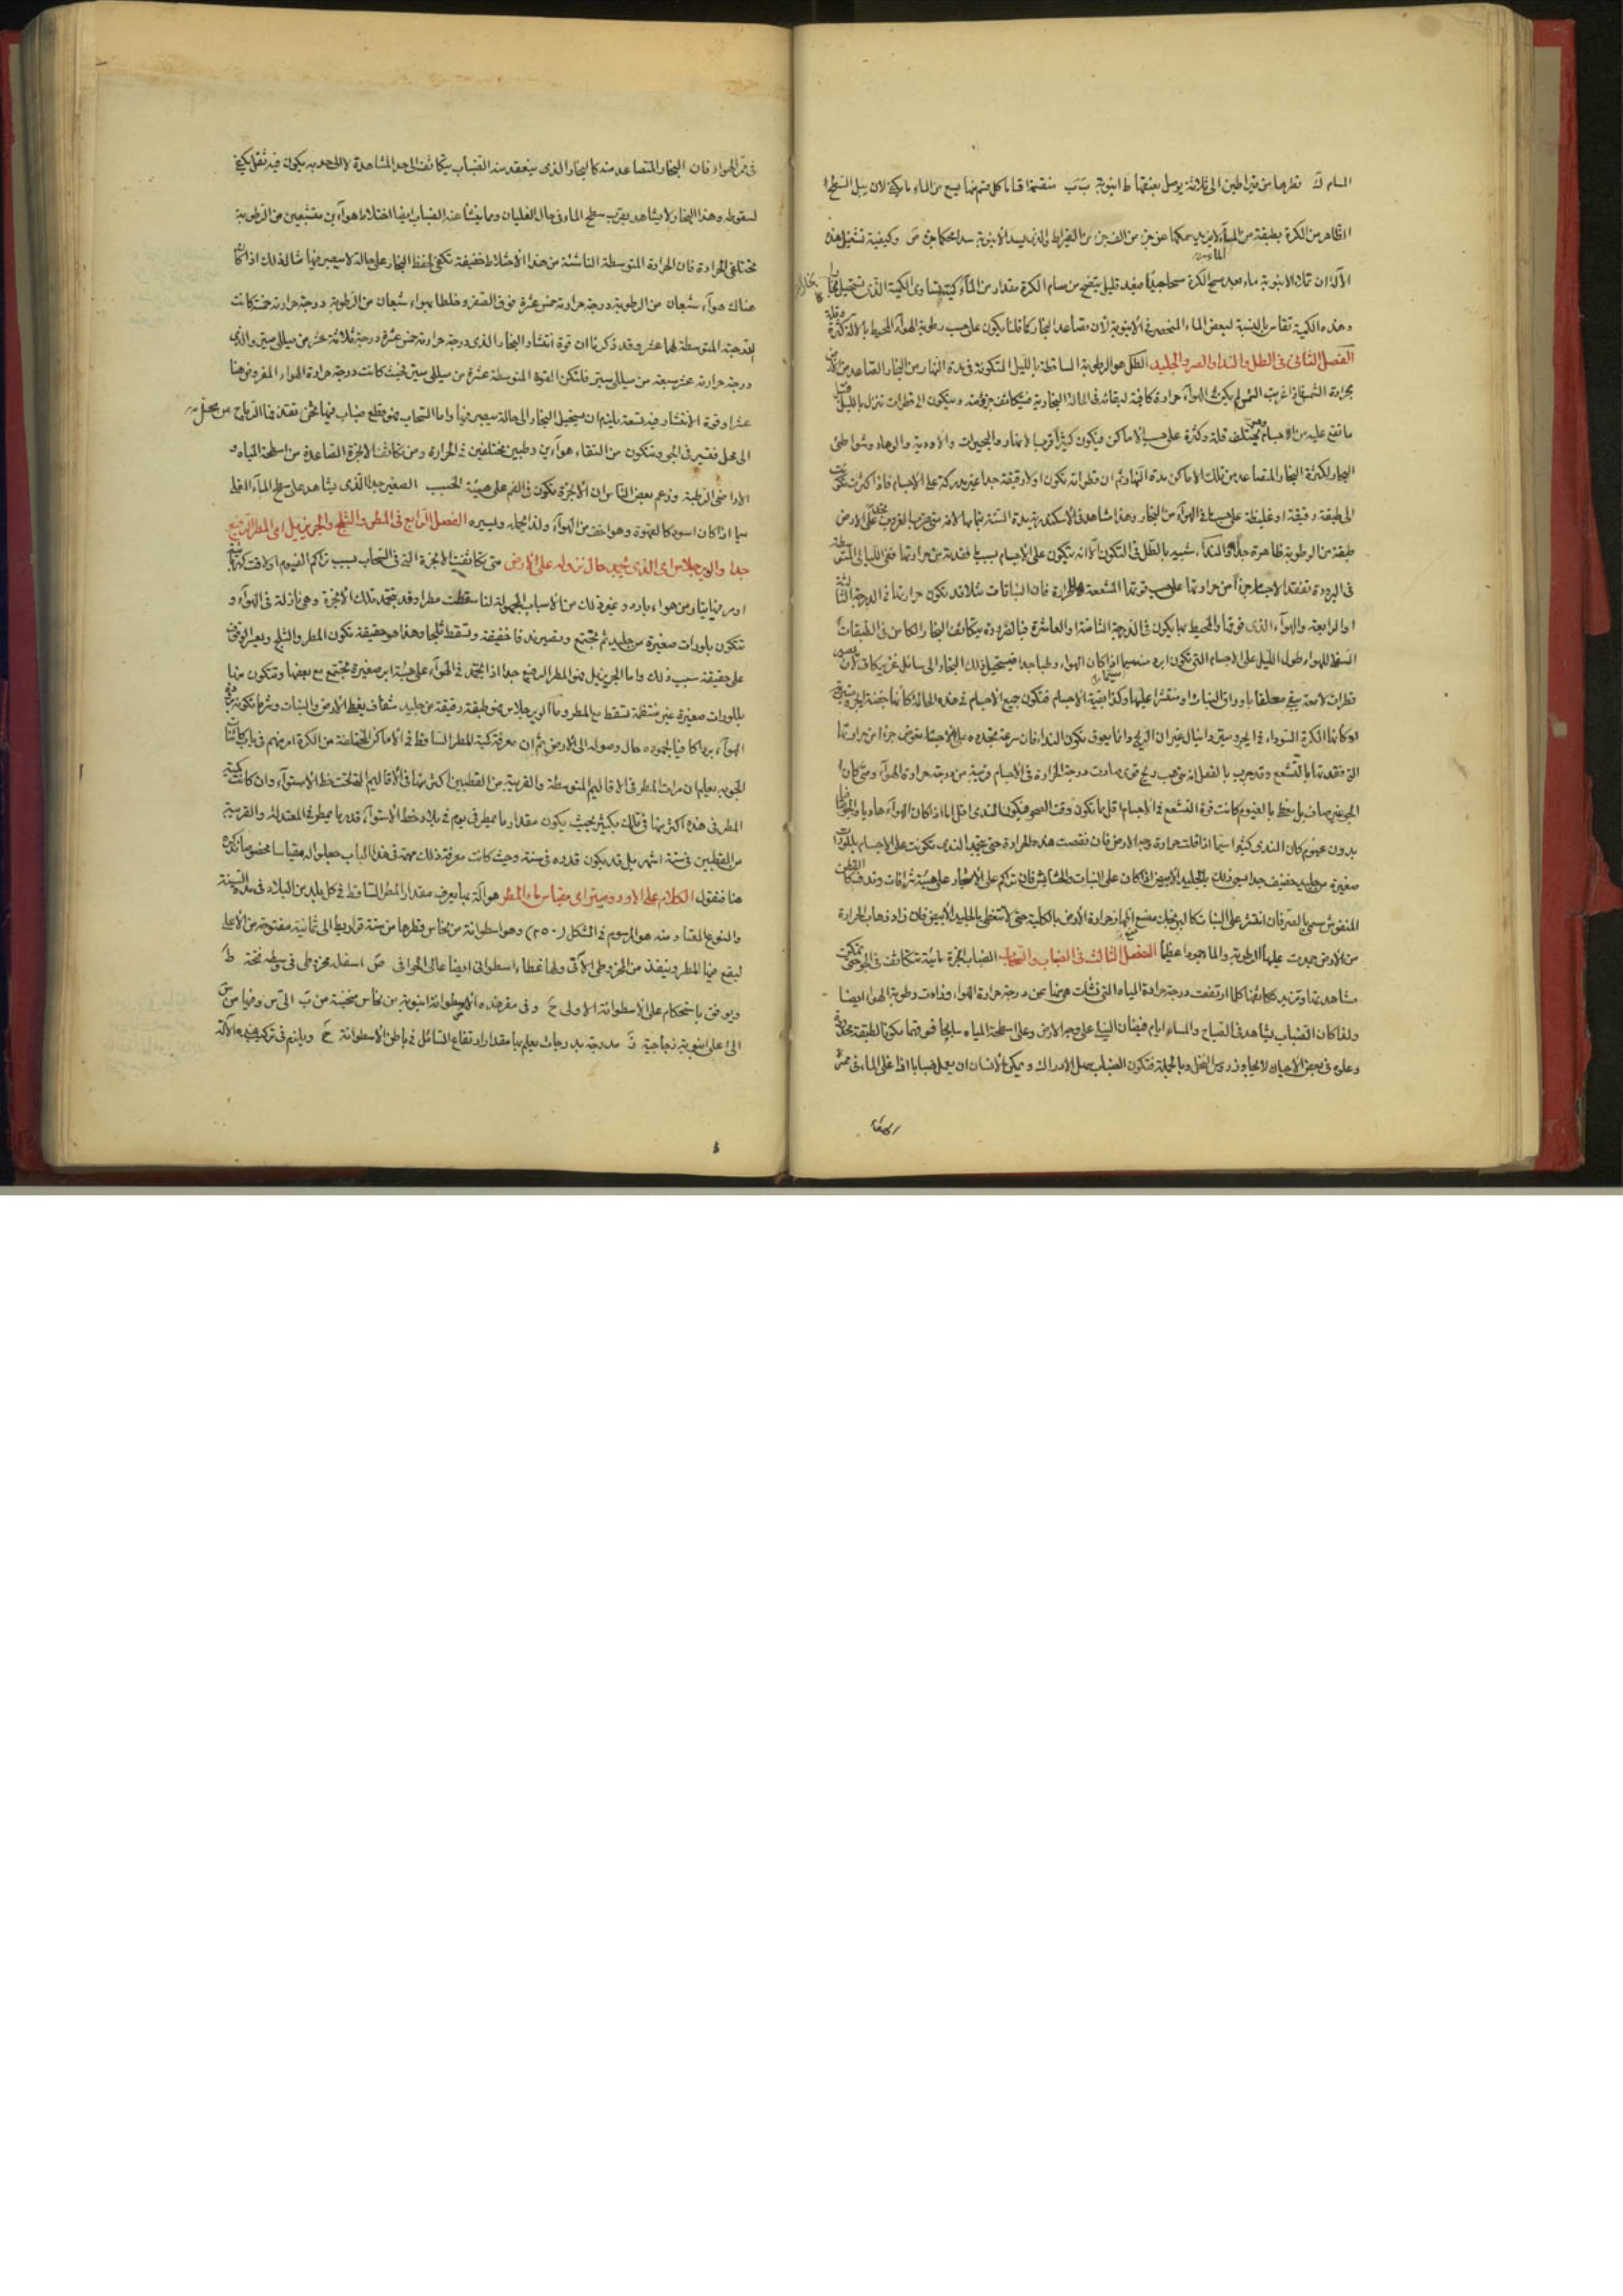 المسام ك قطرها من قيراطين الى ثلاثة يوصل بعنقها ط انبوبة ب ب منقسمة اقساما كل قسم منها يسع من الماء ما يكفى لان يبل السطح
الظاهر من الكرة بطبقة من الماء لا يزيد سمكها عن جزء من الفين من القيراط والذى يسد الانبوبة سدا محكما جزء ص وكيفية تشغيل هذه
الآلة ان تملأ الانبوبة ماء وبعد مسح الكرة مسحا جيدا فبعد قليل يتضح من مسام الكرة مقدار من الماء كميته تساوى الكمية التى تستحيل بخارا
وهذه الكمية تقاس بالنسبة لبعض الماء المنحصر فى الانبوبة لان تصاعد البخار كما قلنا يكون على حسب رطوبة الهواء المحيط بالآلة كثرة وقلة
الفصل الثانى فى الطل والندا والصر والجليد الطل هو الرطوبة الساقطة بالليل المتكونة فى مدة النهار من البخار المتصاعد من الارض
بحرارة الشمس فاذا غربت الشمس لم يكن فى الهواء حرارة كافية لبقائه فى الحالة البخارية فيتكاثف جزء منه ويتكون الى قطرات تنزل بالليل فتبل
ما تقع عليه من الاجسام وهى تختلف قلة وكثرة على حسب الاماكن فيكون كثيرا قرب الانهار والبحيرات والاودية والوهاد وشواطئ
البحار لكثرة البخار المتصاعد من تلك الاماكن مدة النهار ثم ان قطراته تكون اولا دقيقة جدا غير مدركة على الاجسام فاذا كثرت تكونت
الى طبقة رقيقة او غليظة على حسب ما فى الهواء من البخار وهذا مشاهد فى الاسكندرية مدة السنة بتمامها لانه متى قرب الغروب تجد على الارض
طبقة من الرطوبة ظاهرة جدا والنداء شبيه بالطل فى التكون الا انه يتكون على الاجسام بسبب فقد جزء من حرارتها ففى الليالى المتوسطة
فى البرودة تفقد الاجسام جزأ من حرارتها على حسب قوتها المشععة للحرارة فان النباتات مثلا قد يكون حرارتها فى الدرجة الثالثة
او الرابعة والهواء الذى فوقها والمحيط بها يكون فى الدرجة الثامنة او العاشرة فبالضرورة يتكاثف البخار الكامن فى الطبقات
السفلى للهواء طول الليل على الاجسام التى تكون ابرد منه سيما اذا كان الهواء رطبا جدا فيستحيل ذلك البخار الى سائل غزير كاف لان يصير
قطرات لامعة يبقى معلقا باوراق النبات او منتشرا عليها وكذا بقية الاجسام فتكون جميع الاجسام فى هذه الحالة كانها حضنة الجزء
او كانها الكرة السوداء فى ايجروميتر دانيال غير ان الريح دائما يعوق تكون الندا فان سرعة تجدده على الاجسام يعوض جزأ من حرارتها
التى فقدتها بالتشعع وقد جرب بالفعل انه متى هب ريح قوى صارت درجة الحرارة فى الاجسام قريبة من درجة حرارة الهواء ومتى كان
الجو غير صاف بل مغطى بالغيوم كانت قوة التشعع فى الاجسام اقل مما تكون وقت الصحو فيكون الندى اقل اما اذا كان الهواء هاديا والجو صافيا
بدون غيوم كان الندى كثيرا سيما اذا قلت حرارة وجه الارض فان نقصت هذه الحرارة حتى يتجمد الندى تكونت على الاجسام بلورات
صغيرة من جليد خفيف جدا يسمى ذلك بالجليد الابيض اذا كان على النبات والحشايش فان تراكم على الاشجار على هيئة شرافات وندف كالقطن
المنفوش سمى بالصر فان انتشر على النبات كالبرنجك منع انها زحرارة الارض بالكلية حتى لا تتغطى بالجليد الابيض فان زاد ذهاب الحرارة
من الارض جمدت عليها الرطوبة والماء جمودا عظيما الفصل الثالث فى الضباب والسحاب الضباب ابخرة مائية تتكاثف فى الجو حتى تمكن
مشاهدتها وتزيد تكاثفها كلما ارتفعت درجة حرارة المياه التى نشأت هى منها عن درجة حرارة الهواء وزادت رطوبة الهواء ايضا
ولذا كان الضباب يشاهد فى الصباح والمساء ايام فيضان النيل على وجه الارض وعلى اسطحة المياه سابحا فوقها مكونا لطبقة
وعلوه فى بعض الاحيان لا يجاوز رؤس النخل وبالجملة فتكون الضباب سهل الادراك ويمكن الانسان ان يعمل ضبابا اذا غلى الماء فى ممر
فى ممر الهواء فان البخار المتصاعد منه كالبخار الذى ينعقد منه الضباب يتكاثف الى حد المشاهدة لا الى حد يكون فيه ثقل يكفى
لسقوطه وهذا البخار لا يشاهد بقرب سطح الماء فى حال الغليان ومما ينشأ عنه الضباب ايضا اختلاط هوآءين متشبعين من الرطوبة
مختلفى الحرارة فان الحرارة المتوسطة الناشئة من هذا الاختلاط خفيفة تكفى لحفظ البخار على حالة لا يصير فيها مثال ذلك اذا كان
هناك هوآء شبعان من الرطوبة درجة حرارته خمس عشرة فوق الصفر وخلط بهواء شبعان من الرطوبة درجة حرارته خمسة كانت
الدرجة المتوسطة لهما عشر وقد ذكرنا ان قوة انتشار البخار الذى درجة حرارته خمس عشرة درجة ثلاثة عشر من ميللى ميتر والذى
درجة حرارته خمس سبعة من ميللى ميتر فلتكن القوة المتوسطة عشرة من ميللى ميتر بحيث كانت درجة حرارة الهواء المفروض هنا
عشرا وقوة الانتشار فيه تسعة يلزم ان يستحيل البخار الى حالة يصير فيها واما السحاب فهو قطع ضباب فيها ثخن تقذفها الرياح من محل
الى محل فتسير فى الجو وتتكون من التقاء هوآءين رطبين مختلفين فى الحرارة ومن تكاثف الابخرة الصاعدة من اسطحة المياه و
الاراضى الرطبة وزعم بعض الناس ان الابخرة تكون فى الغيم على هيئة الحبيب الصغير جدا الذى يشاهد على سطح الماء المغلى
سيما اذا كان اسود كالقهوة وهو اخف من الهواء ولذا يحمله ويسيره الفصل الرابع فى المطر والثلج والجريزيل اى المطر الرفيع
جدا والويرجلاس اى الذى يتجمد حال نزوله على الارض متى تكاثفت الابخرة التى فى السحاب بسبب تراكم الغيوم او لاقت
او مر فيها تيار من هواء بارد وغير ذلك من الاسباب المجهولة لنا سقطت مطرا وقد تتجمد تلك الابخرة وهى نازلة فى الهواء و
تتكون بلورات صغيرة من جليد ثم تجتمع وتصير ندفا خفيفة وتسقط ثلجا وهذا هو حقيقة تكون المطر والثلج ويعسر الوقوف
على حقيقة سبب ذلك واما الجريزيل فهو المطر الرفيع جدا اذا تجمد فى الهوآء على هيئة ابر صغيرة تجتمع مع بعضها وتتكون منها
بلورات صغيرة غير منتظمة تسقط مع المطر وما الويرجلاس فهو طبقة رقيقة من جليد شفاف يغطى الارض والنبات وشرط تكونه برد
الهوآء بردا كافيا لجموده حال وصوله الى الارض ثم ان معرفة كمية المطر الساقط فى الاماكن المختلفة من الكرة امر مهم فى باب كائنات
الجو به يعلم ان مرات المطر فى الاقاليم المتوسطة والقريبة من القطبين اكثر منها فى الاقاليم التى تحت خط الاستوآء وان كانت كمية
المطر فى هذه اكثر منها فى تلك بكثير بحيث يكون مقدار ما يمطر فى يوم فى بلاد خط الاستوآء قدر ما يمطر فى المعتدلة والقريبة
من القطبين فى ستة اشهر بل قد يكون قدره فى سنة وحيث كانت معرفة ذلك مهمة فى هذا الباب جعلوا له مقياسا مخصوصا نذكره
هنا فنقول الكلام على الاودوميتر اى مقياس ماء المطر هو آلة بها يعرف مقدار المطر الساقط فى كل بلد من البلاد فى مدة السنة
والنوع المعتاد منه هو المرسوم فى الشكل (٢٥٠) وهو اسطوانة من نحاس قطرها من ستة قراريط الى ثمانية مفتوحة من الاعلى
ليقع فيها المطر وينفذ من المخروطى الآتى ولها غطاء اسطوانى ايضا عالى الحوافى ص اسفله مخروطى فى وسطه فتحة ط
ويوفق باستحكام على الاسطوانة الاولى ح وفى مقر هذه الاسطوانة انبوبة من نحاس منحنية من ب الى س وفيها من س
الى اعلى انبوبة زجاجية ن مدرجة بدرجات يعلم بها مقدار ارتفاع السائل فى باطن الاسطوانة ح ويلزم فى تركيب هذه الآلة